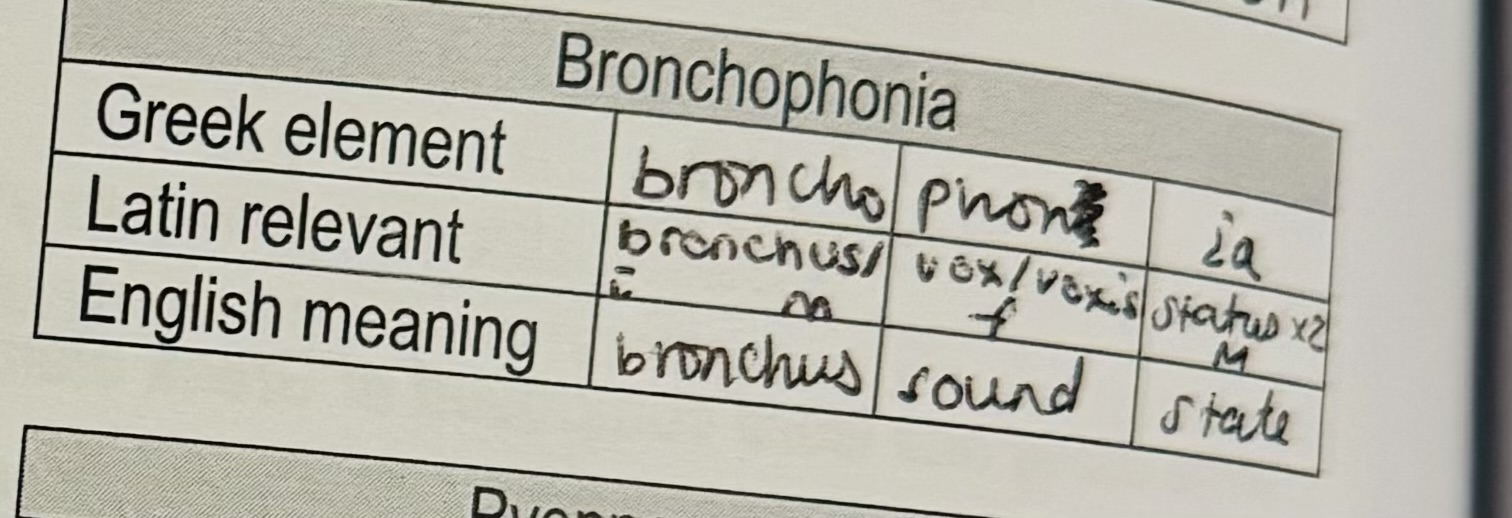 Bronchophonia
Greek element broncho phon ia
Latin relevant bronchus/ī m vox/voxis f status x2 M
English meaning bronchus sound state